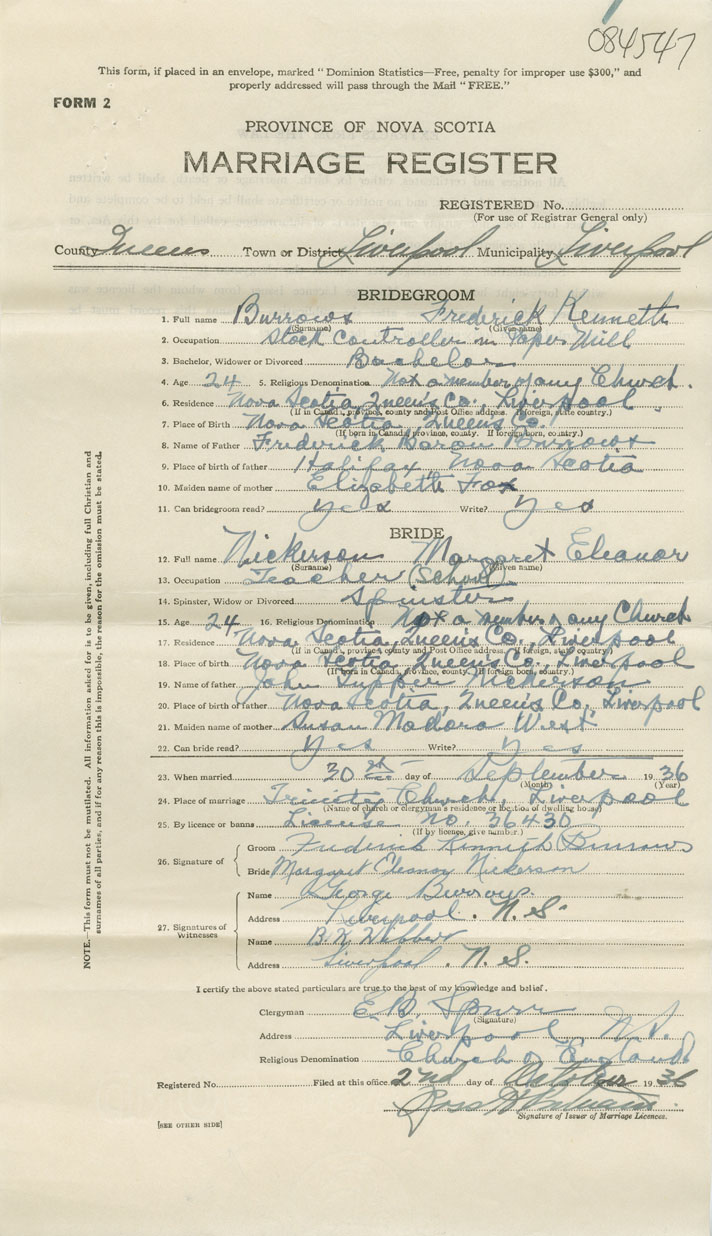 084547
This form, if placed in an envelope, marked "Dominion Statistics—Free, penalty for improper use $300," and
properly addressed will pass through the Mail "FREE."
FORM 2
PROVINCE OF NOVA SCOTIA
MARRIAGE REGISTER
REGISTERED No.
(For use of Registrar General only)
County Queens Town or District Liverpool Municipality Liverpool
BRIDEGROOM
1. Full name Burrows Frederick Kenneth
(Surname) (Given name)
2. Occupation Stock Controller in Paper Mill
3. Bachelor, Widower or Divorced Bachelor
4. Age 24 5. Religious Denomination Not a member of any Church.
6. Residence Nova Scotia, Queen's Co., Liverpool
(If in Canada, province, county and Post Office address. If foreign, state country.)
7. Place of Birth Nova Scotia, Queen's Co.
(If born in Canada, province, county. If foreign born, country.)
8. Name of Father Frederick Burrows
9. Place of birth of father Halifax, Nova Scotia
10. Maiden name of mother Elizabeth Fox
11. Can bridegroom read? yes Write? yes
BRIDE
12. Full name Nickerson Margaret Eleanor
(Surname) (Given name)
13. Occupation Teacher (School)
14. Spinster, Widow or Divorced Spinster
15. Age 24 16. Religious Denomination Not a member of any Church
17. Residence Nova Scotia, Queen's Co., Liverpool
(If in Canada, province, county and Post Office address. If foreign, state country.)
18. Place of birth Nova Scotia, Queen's Co., Liverpool
(If born in Canada, province, county. If foreign born, country.)
19. Name of father John Tupper Nickerson
20. Place of birth of father Nova Scotia, Queen's Co, Liverpool
21. Maiden name of mother Susan Medora West
22. Can bride read? Yes Write? Yes
23. When married 30th day of September 1936
(Month) (Year)
24. Place of marriage Trinity Church, Liverpool
(Name of church or clergyman's residence or location of dwelling house)
25. By licence or banns License no. 36430
(If by licence, give number.)
26. Signature of
Groom Frederick Kenneth Burrows
Bride Margaret Eleanor Nickerson
27. Signatures of Witnesses
Name George Burrows.
Address Liverpool. N.S.
Name B.K.
Address Liverpool. N.S.
I certify the above stated particulars are true to the best of my knowledge and belief.
Clergyman E.B. Spurr
(Signature)
Address Liverpool N.S.
Religious Denomination Church of England
Registered No. Filed at this office 2nd day of October 1936
Signature of Issuer of Marriage Licences.
[SEE OTHER SIDE]
NOTE.—This form must not be mutilated. All information asked for is to be given, including full Christian and
surnames of all parties, and if for any reason this is impossible, the reason for the omission must be stated.